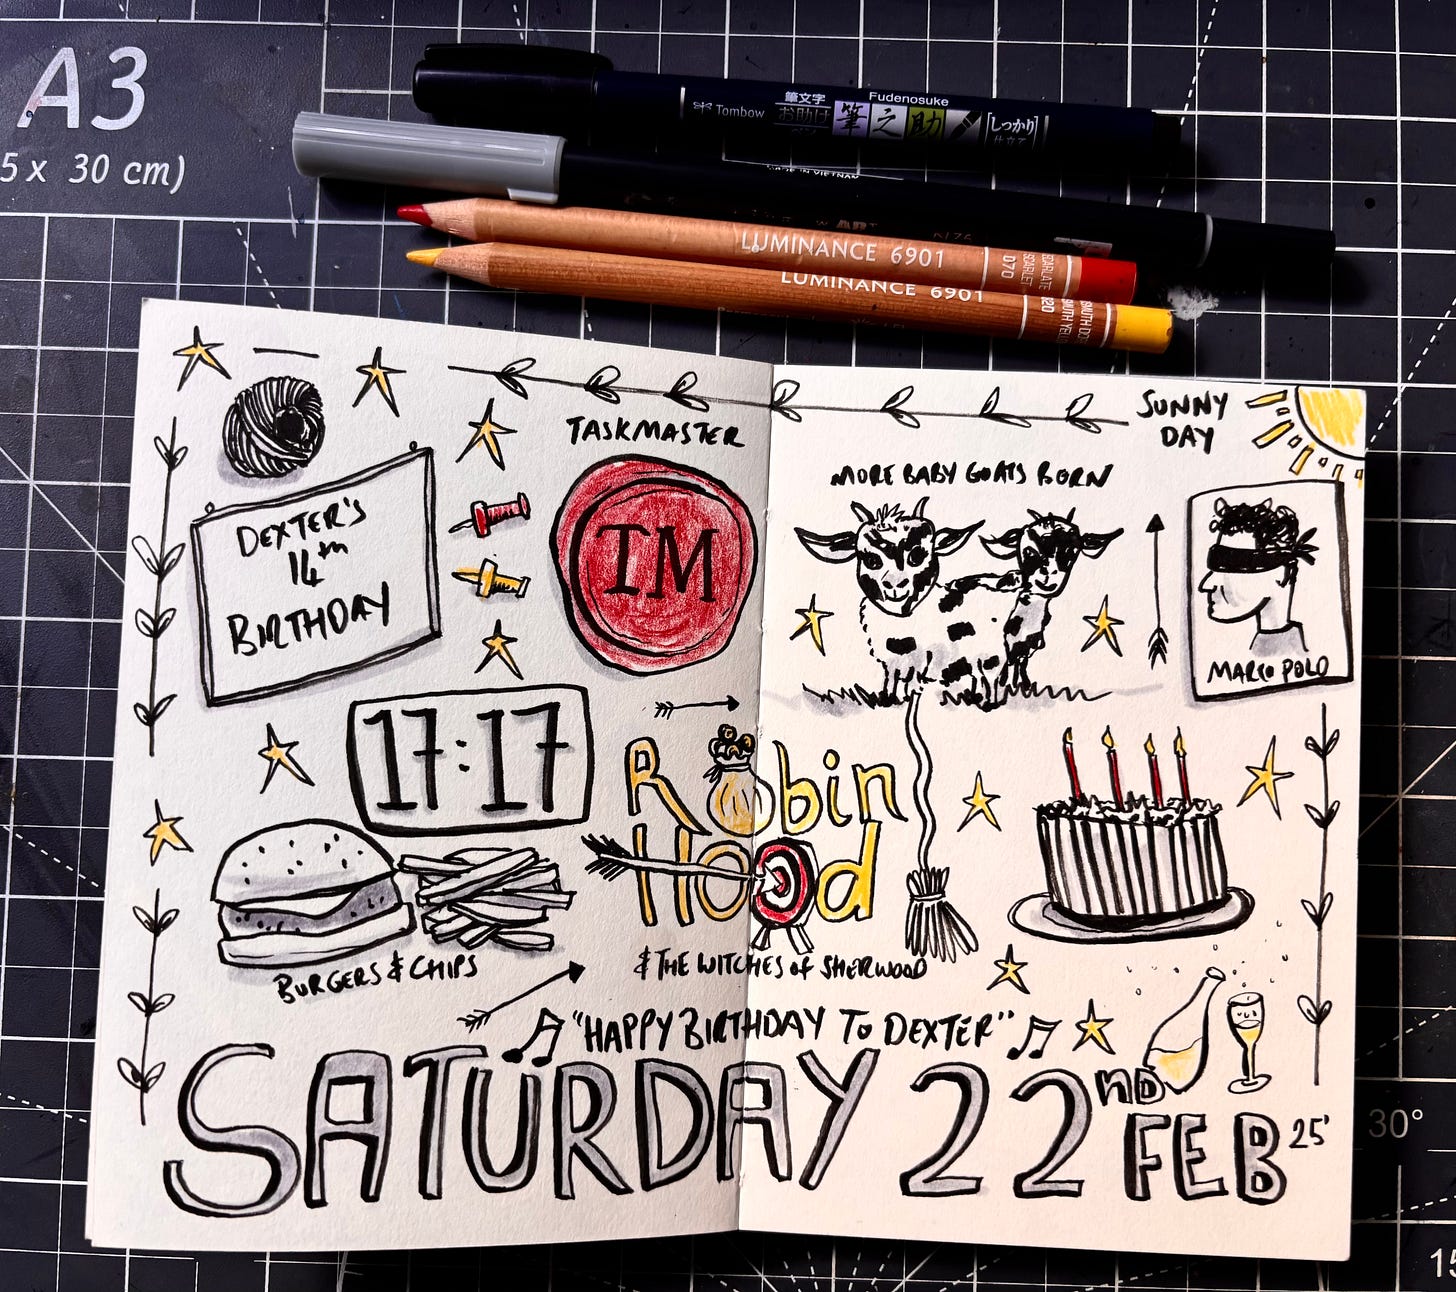 A3
5 x 30 cm)
Tombow
筆文字
お助け
Fudenosuke
筆之助
しっかり
仕立て
MADE IN VIETNAM
LUMINANCE 6901
LUMINANCE 6901
TASKMASTER
TM
DEXTER'S
14TH
BIRTHDAY
17:17
BURGERS & CHIPS
SUNNY
DAY
MORE BABY GOATS BORN
MARCO POLO
Robin
Hood
& THE WITCHES of SHERWOOD
"HAPPY BIRTHDAY To DEXTER"
SATURDAY 22ND FEB 25'
30°
15